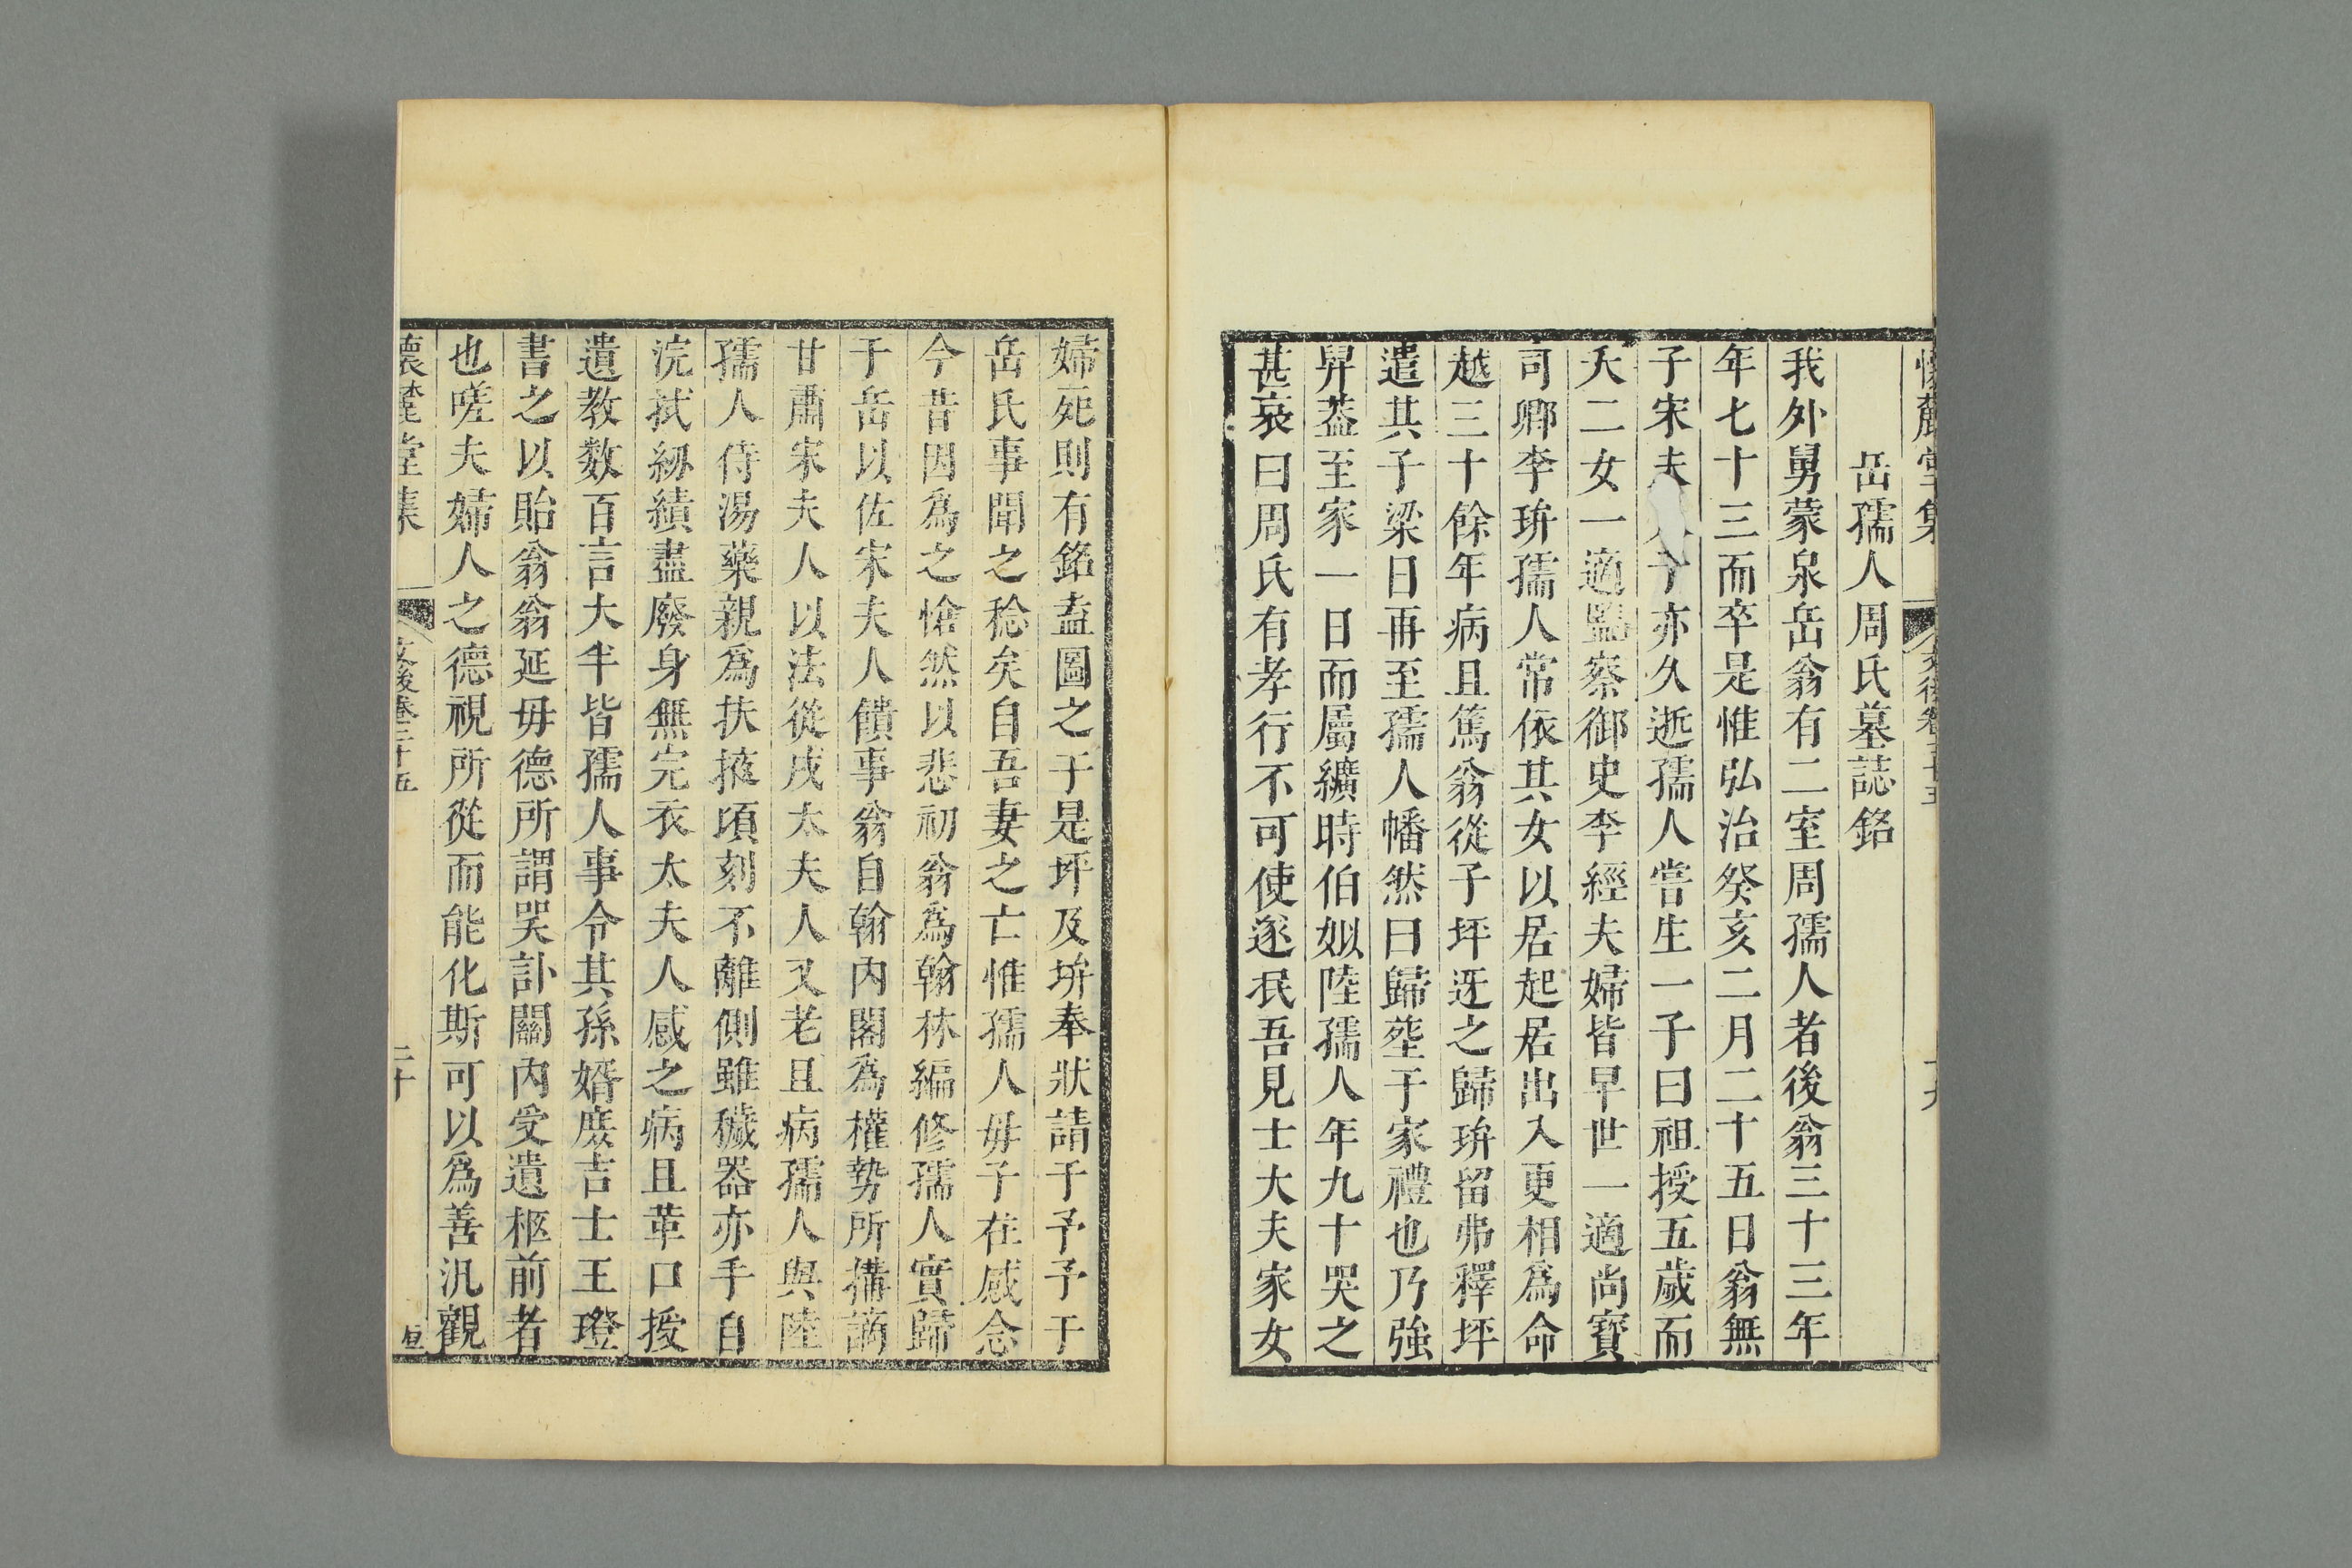 岳孺人周氏墓誌銘
我外舅蒙泉岳翁有二室周孺人者後翁三十三年
年七十三而卒是惟弘治癸亥二月二十五日翁無
子宋夫人子亦久逝孺人嘗生一子曰祖授五歲而
夭二女一適監察御史李經夫婦皆早世一適尚寶
司卿李琀孺人常依其女以居起居出入更相為命
越三十餘年病且篤翁從子坪迓之歸琀留弗釋坪
遣其子梁日再至孺人幡然曰歸塟于家禮也乃強
舁葢至家一日而屬纊時伯姒陸孺人年九十哭之
甚哀曰周氏有孝行不可使遂泯吾見士大夫家女
婦死則有銘盍圖之于是坪及琀奉狀請于予予于
岳氏事聞之稔矣自吾妻之亡惟孺人毋子在感念
今昔因為之愴然以悲初翁為翰林編修孺人實歸
于岳以佐宋夫人饋事翁自翰內閣為權勢所搆謫
甘肅宋夫人以法從戍太夫人又老且病孺人與陸
孺人侍湯藥親為扶掖頃刻不離側雖穢器亦手自
浣拭紉績盡廢身無完衣太夫人感之病且革口授
遺教数百言大半皆孺人事令其孫婿庶吉士王璒
書之以貽翁翁延毋德所謂哭訃關內受遺柩前者
也嗟夫婦人之德視所從而能化斯可以為善汎觀
懷麓堂集 文後卷二十五 二十